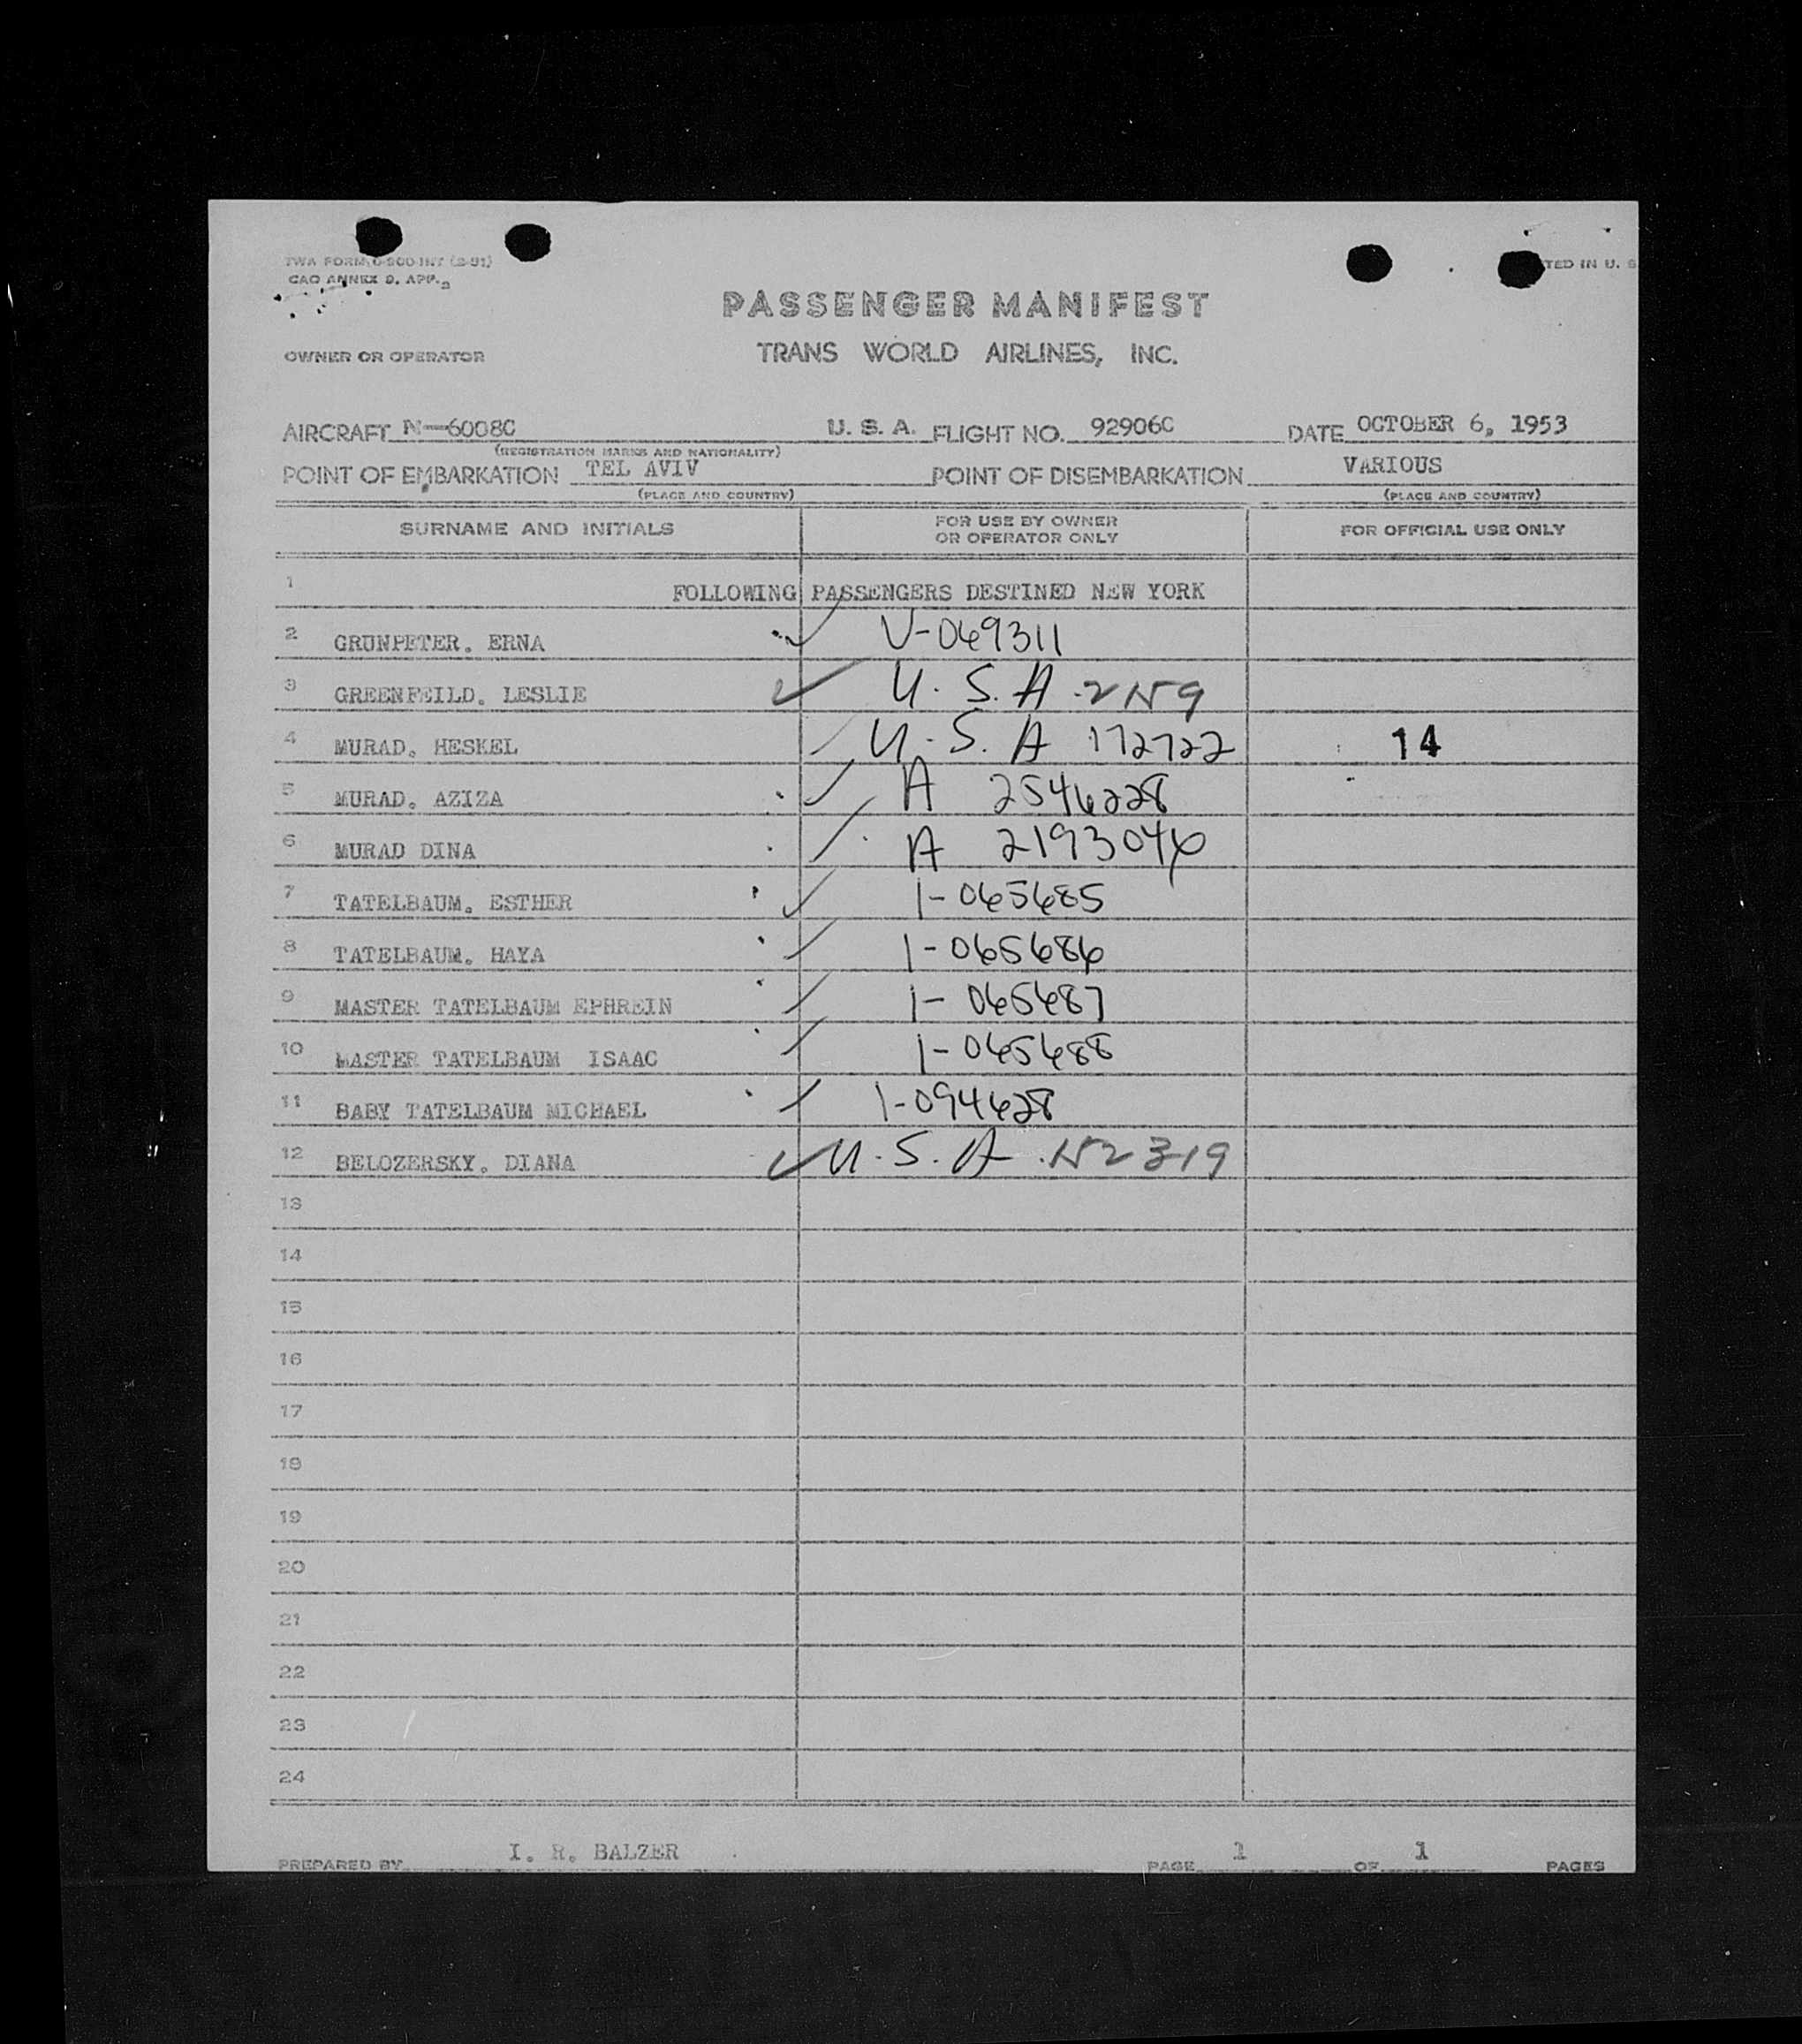 TWA FORM O-900-INT (2-51)
CAO ANNEX 9, APP. 2
TED IN U. S
PASSENGER MANIFEST
OWNER OR OPERATOR TRANS WORLD AIRLINES, INC.
AIRCRAFT N-6008C U. S. A. FLIGHT NO. 92906C DATE OCTOBER 6, 1953
(REGISTRATION MARKS AND NATIONALITY)
POINT OF EMBARKATION TEL AVIV POINT OF DISEMBARKATION VARIOUS
(PLACE AND COUNTRY) (PLACE AND COUNTRY)
SURNAME AND INITIALS FOR USE BY OWNER OR OPERATOR ONLY FOR OFFICIAL USE ONLY
1 FOLLOWING PASSENGERS DESTINED NEW YORK
2 GRUNPETER. ERNA V-069311
3 GREENFEILD. LESLIE U.S.A. 2159
4 MURAD. HESKEL U.S.A 172722 14
5 MURAD. AZIZA A 2546228
6 MURAD DINA A 2193046
7 TATELBAUM. ESTHER 1-065685
8 TATELBAUM. HAYA 1-065686
9 MASTER TATELBAUM EPHREIN 1-065687
10 MASTER TATELBAUM ISAAC 1-065688
11 BABY TATELBAUM MICHAEL 1-094628
12 BELOZERSKY. DIANA U.S.A. 152319
13
14
15
16
17
18
19
20
21
22
23
24
PREPARED BY I. R. BALZER PAGE 1 OF 1 PAGES